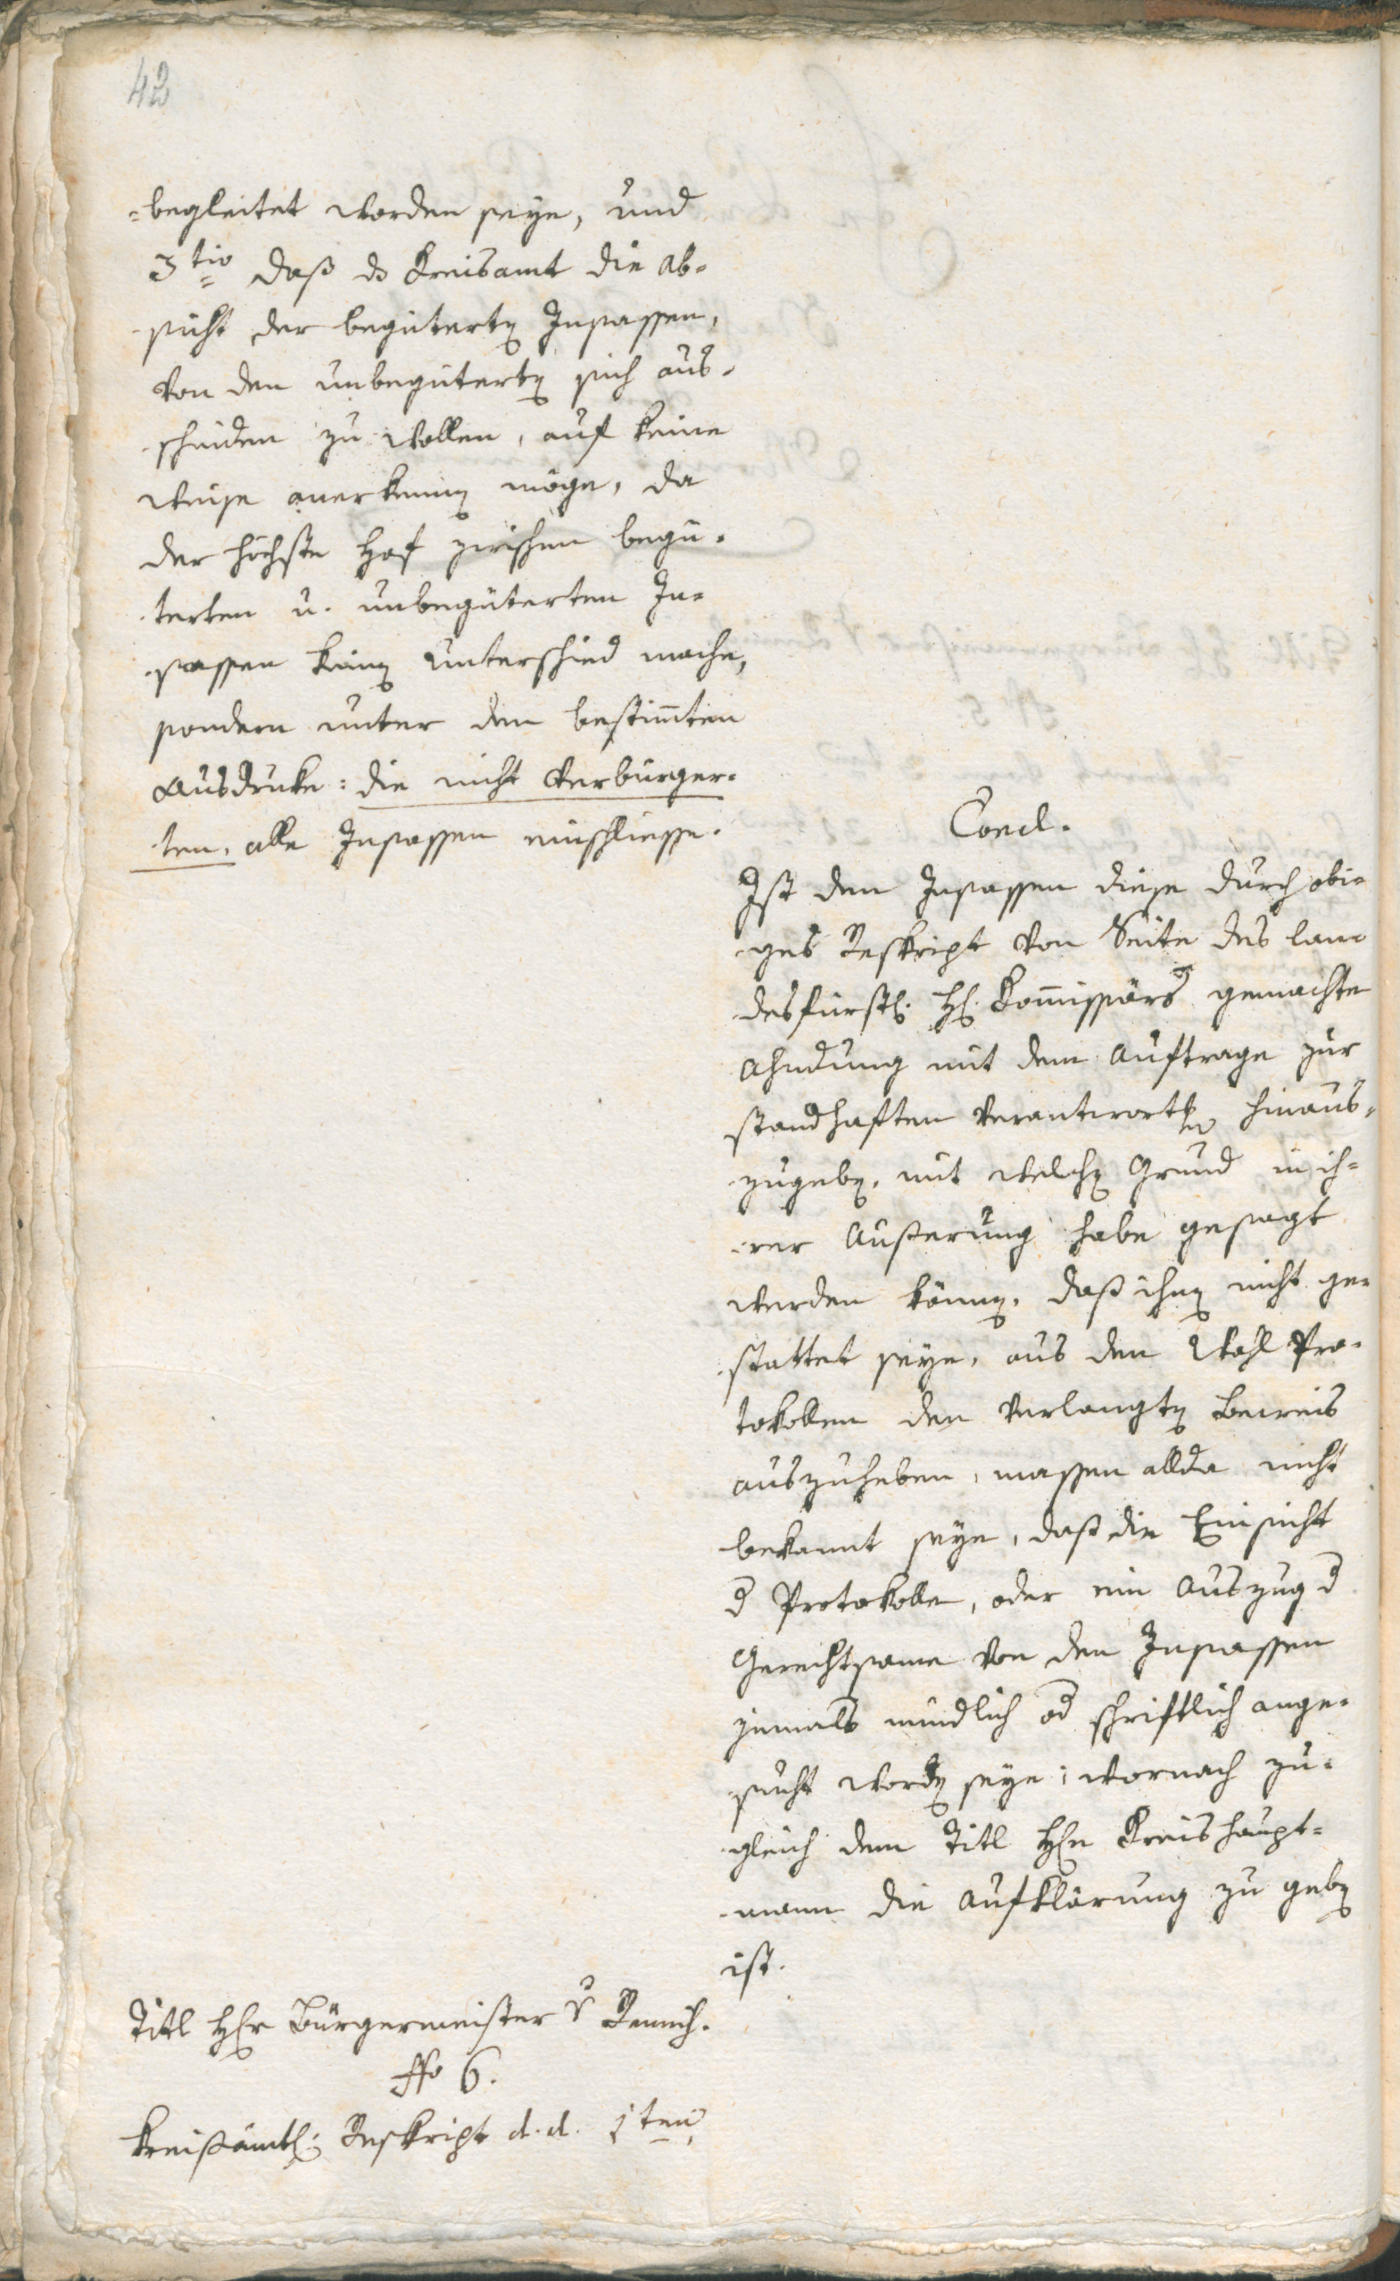 42
-begleitet worden seye, und
3tio daß ds Kreisamt die Ab-
sicht der begüterten Insassen,
von den unbegüterten sich aus-
scheiden zu wollen, auf keine
Weise anerkennen möge, da
der höchste Hof zwischen begü-
terten u. unbegüterten In-
sassen keinen Unterschied mache,
sondern unter dem bestimten
Ausdruke: die nicht verbürger-
ten, alle Insassen einschliesse.
Concl.
Ist den Insassen diese durch obi-
ges Reskript von Seite des lan-
desfürstl. H. Kommissärs gemachte
Ahndung mit dem Auftrage zur
standhaften Verantwortung hinaus-
zugeben, mit welchem Grund in ih-
rer Äußerung habe gesagt
werden können, daß ihnen nicht ge-
stattet seye, aus den Wahl Pro-
tokollen den verlangten Beweis
auszuheben, massen allda nicht
bekannt seye, daß die Einsicht
d Protokolle, oder ein Auszug d
Gerechtsame von den Insassen
jemals mündlich od schriftlich ange-
sucht worden seye; wornach zu-
gleich dem Titl Hn Kreishaupt-
mann die Aufklärung zu geben
ist.
Titl Hr Bürgermeister v
No 6.
Kreißämtl. Reskript d. d. 1ten